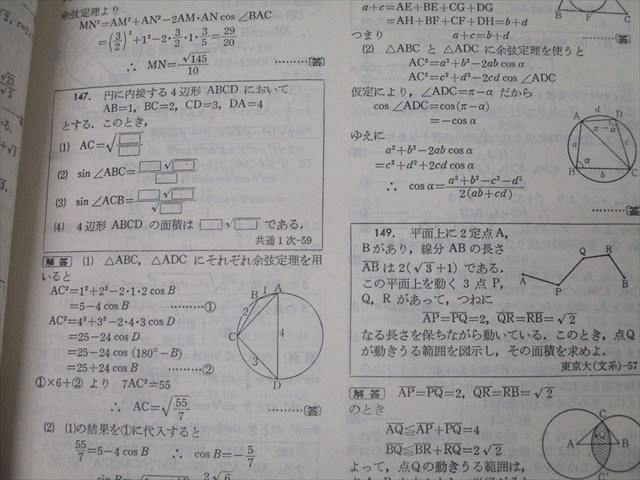 余弦定理より
MN²=AM²+AN²-2AM·AN cos ∠BAC
=(3/2)²+1²-2·3/2·1·3/5=29/20
∴ MN=√145/10 ………〔答〕
147. 円に内接する4辺形 ABCD において
AB=1, BC=2, CD=3, DA=4
とする. このとき,
(1) AC=√□/□
(2) sin ∠ABC=□√□/□
(3) sin ∠ACB=□√□/√□
(4) 4辺形 ABCD の面積は □√□ である.
共通1次-59
解答 (1) △ABC, △ADC にそれぞれ余弦定理を用
いると
AC²=1²+2²-2·1·2 cos B
=5-4 cos B ………①
AC²=4²+3²-2·4·3 cos D
=25-24 cos D
=25-24 cos (180°-B)
=25+24 cos B ………②
①×6+② より 7AC²=55
∴ AC=√55/7 ………〔答〕
(2) (1)の結果を①に代入すると
55/7=5-4 cos B ∴ cos B=-5/7
B 1 A
2
C
4
3
D
a+c=AE+BE+CG+DG
=AH+BF+CF+DH=b+d
つまり a+c=b+d
B F C
(2) △ABC と △ADC に余弦定理を使うと
AC²=a²+b²-2ab cos α
AC²=c²+d²-2cd cos ∠ADC
仮定により, ∠ADC=π-α だから
cos ∠ADC=cos(π-α)
=-cos α
ゆえに
a²+b²-2ab cos α
=c²+d²+2cd cos α
∴ cos α=a²+b²-c²-d²/2(ab+cd)
………〔答〕
A d D
π-α
a c
B α b C
149. 平面上に2定点 A,
B があり, 線分 AB の長さ
AB は 2(√3+1) である.
この平面上を動く3点 P,
Q, R があって, つねに
AP=PQ=2, QR=RB=√2
なる長さを保ちながら動いている. このとき, 点Q
が動きうる範囲を図示し, その面積を求めよ.
東京大(文系)-57
A P Q R B
解答 AP=PQ=2, QR=RB=√2
のとき
AQ≦AP+PQ=4
BQ≦BR+RQ=2√2
よって, 点Qの動きうる範囲は,
C
A B
C'